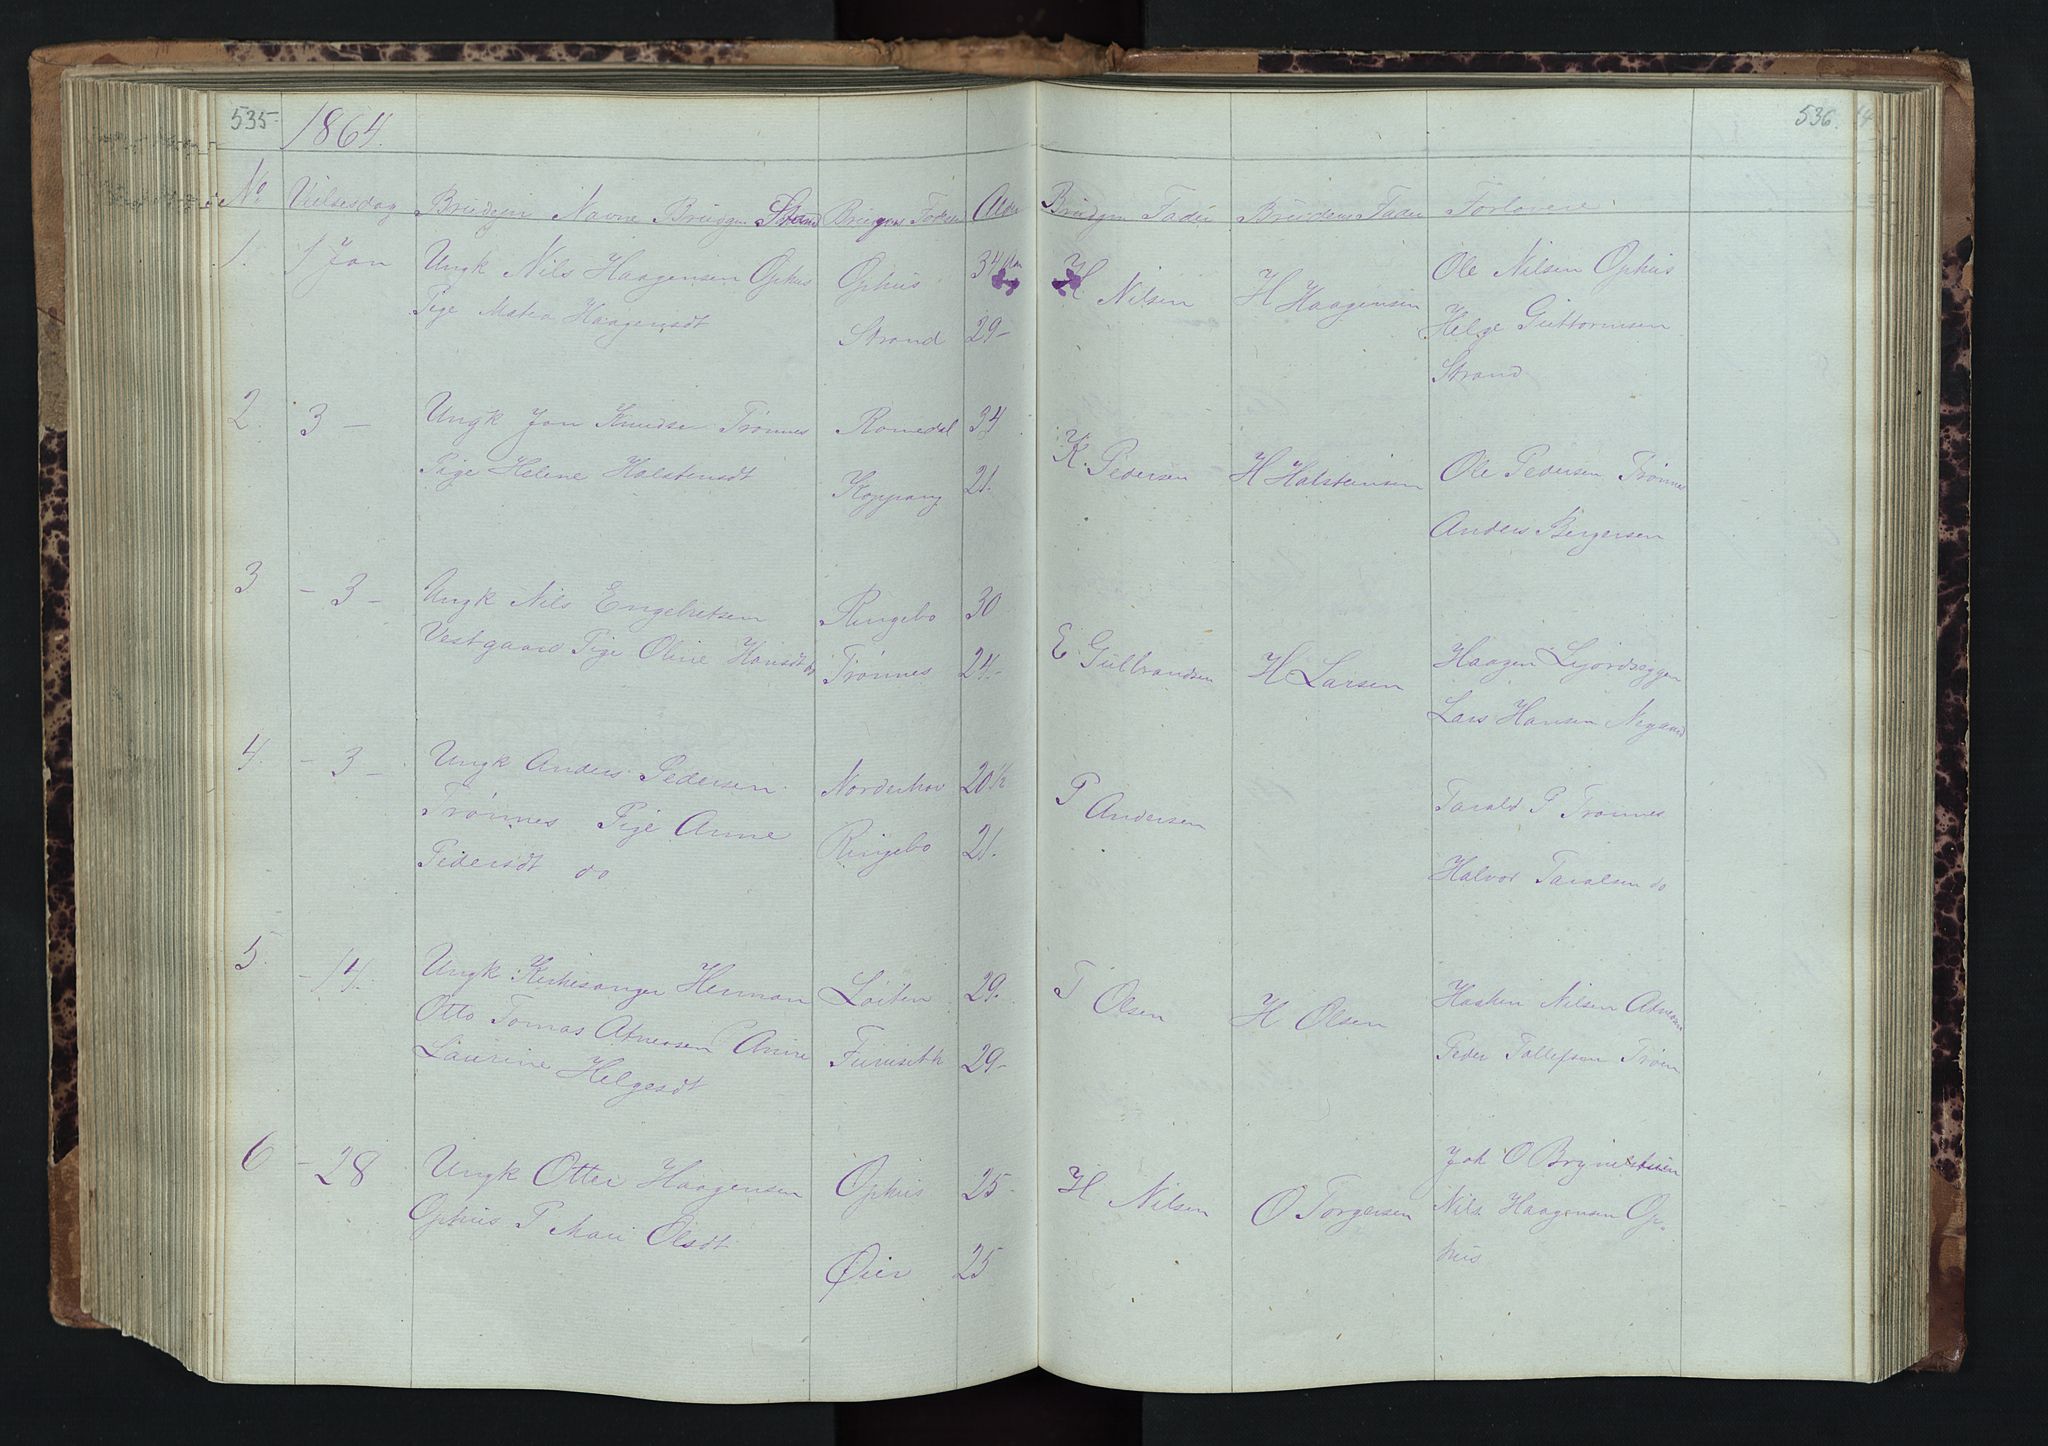 535
1864.
536.
No Vielsesdag Brudgm Navne Brudgm Stand Brudgms Fødest Alder Brudgm Fader Brudens Fader Forlovere
1. 1 Jan Ungk Nils Haagensen Ophus Ophus 34 H Nilsen H Haagensen Ole Nilsen Ophus
Pige Haagensdt Strand 29- Helge Guttormsen
Strand
2. 3 - Ungk Jon Knudsen Trønnes Romedal 34 K. Pedersen H Halstensen Ole Pedersen Trønnes
Pige Helene Halstensdt Koppang 21. Anders Bergersen
3 - 3 - Ungk Nils Engebretsen Ringebo 30 E Gulbrandsen H Larsen Haagen
Vestgaard Pige Oline Hansdt do Trønnes 24.- Lars Hansen
4. - 3 - Ungk Anders Pedersen Norderhov 20½ P Andersen Tarald P Trønnes
Trønnes Pige Anne Ringebo 21. Halvor Taralsen do
Pedersdt do
5. - 14. Ungk Kirkesanger Herman Løiten 29. T Olsen H Olsen Nilsen
Otto Tomas Atneosen Anne Furuseth 29- Peder Tollefsen Trøen
Laurine Helgesdt
6 - 28 Ungk Otter Haagensen Ophus 25- H Nilsen O Torgersen Joh O
Ophus P Mari Olsdt Øier 25 Nils Haagensen Op-
hus